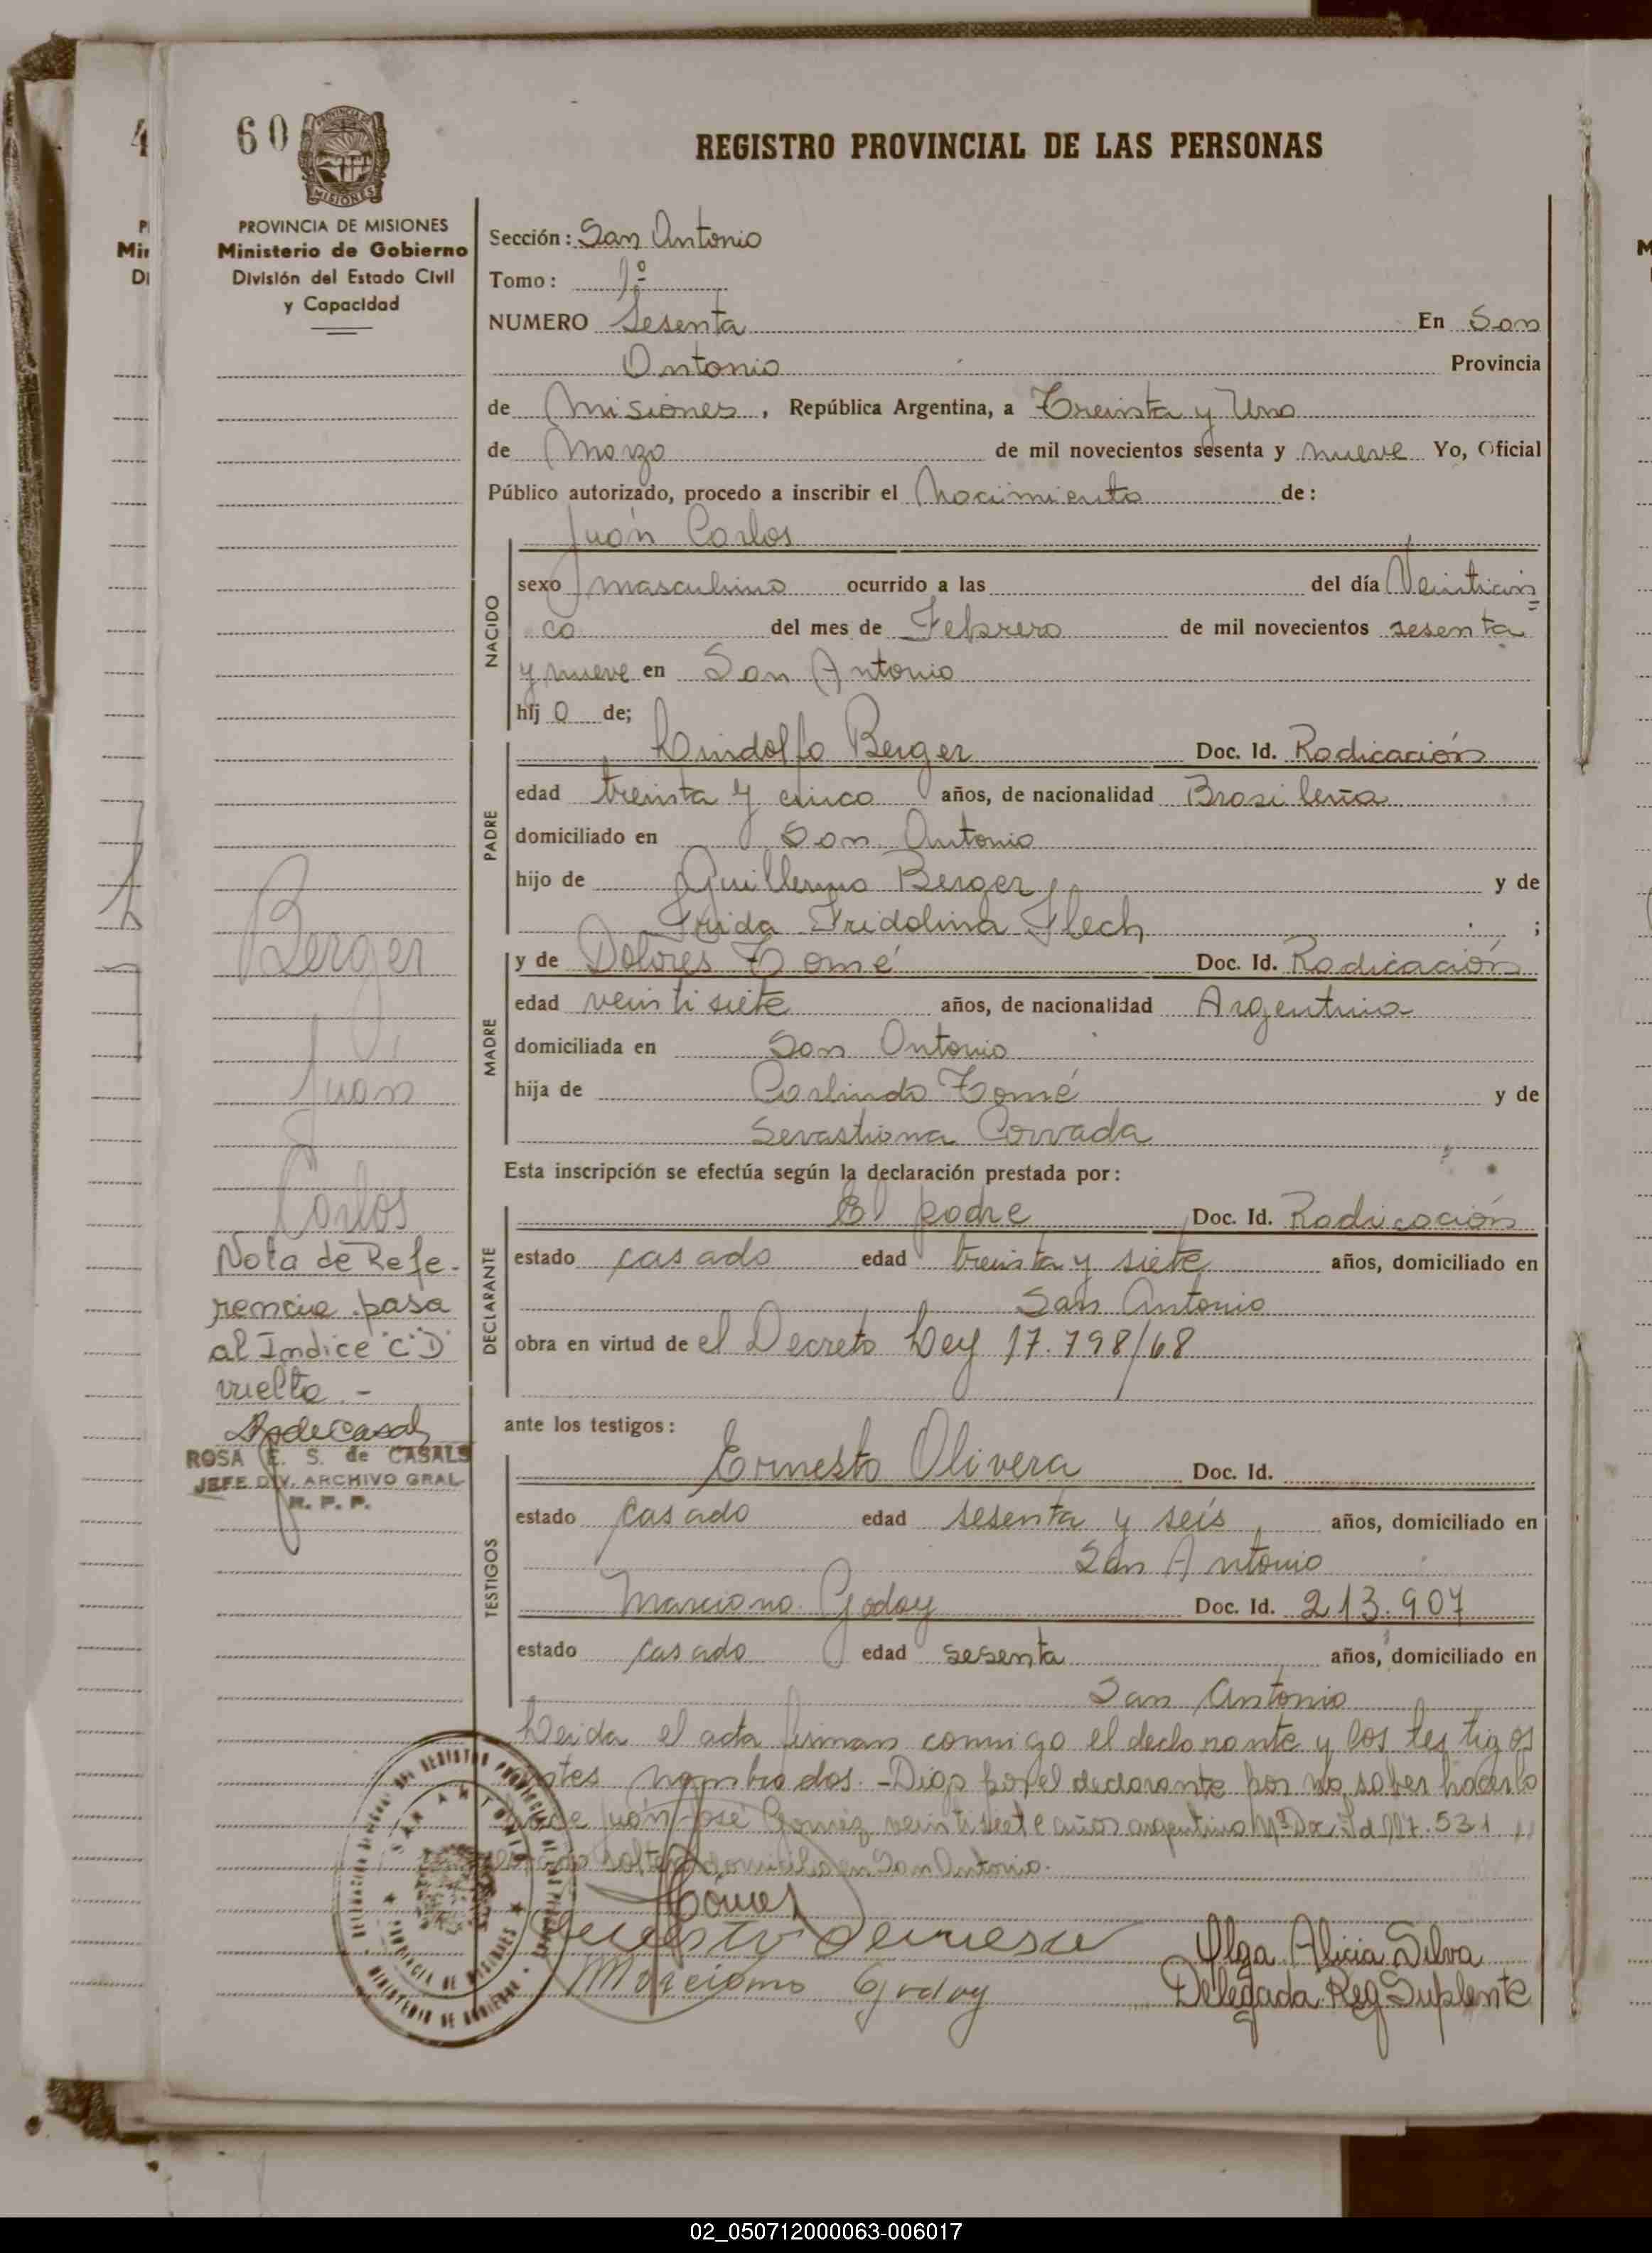 60
PROVINCIA DE MISIONES
Ministerio de Gobierno
División del Estado Civil
y Capacidad
REGISTRO PROVINCIAL DE LAS PERSONAS
Sección: San Antonio
Tomo: 1º
NUMERO Sesenta En San
Antonio Provincia
de Misiones, República Argentina, a Treinta y Uno
de Marzo de mil novecientos sesenta y nueve Yo, Oficial
Público autorizado, procedo a inscribir el Nacimiento de:
Juan Carlos
NACIDO
sexo masculino ocurrido a las del día Veinticin=
co del mes de Febrero de mil novecientos sesenta
y nueve en San Antonio
hij o de;
PADRE
Lindolfo Berger Doc. Id. Radicación
edad treinta y cinco años, de nacionalidad Brasileña
domiciliado en San Antonio
hijo de Guillermo Berger y de
Frida Fridolina Flech ;
MADRE
y de Dolores Tomé Doc. Id. Radicación
edad veintisiete años, de nacionalidad Argentina
domiciliada en San Antonio
hija de Carlindo Tomé y de
Sevastiana Corrada
Esta inscripción se efectúa según la declaración prestada por:
DECLARANTE
El padre Doc. Id. Radicación
estado casado edad treinta y siete años, domiciliado en
San Antonio
obra en virtud de el Decreto Ley 17.798/68
ante los testigos:
TESTIGOS
Ernesto Olivera Doc. Id.
estado casado edad sesenta y seis años, domiciliado en
San Antonio
Marciano Godoy Doc. Id. 213.907
estado casado edad sesenta años, domiciliado en
San Antonio
Leida el acta firman conmigo el declarante y los testigos
antes nombrados. - Digo por el declarante por no saber hacerlo
Juan José Gomez veintisiete años argentino Nº Doc. Id 531
soltero domicilio en San Antonio.
Gómez
Marciano Godoy
Olga Alicia Silva
Delegada Reg Suplente
Berger
Juan
Carlos
Nota de Refe-
rencia pasa
al Indice "C" "D"
vuelta. -
ROSA E. S. de CASALS
JEFE DIV. ARCHIVO GRAL
R. P. P.
02_050712000063-006017